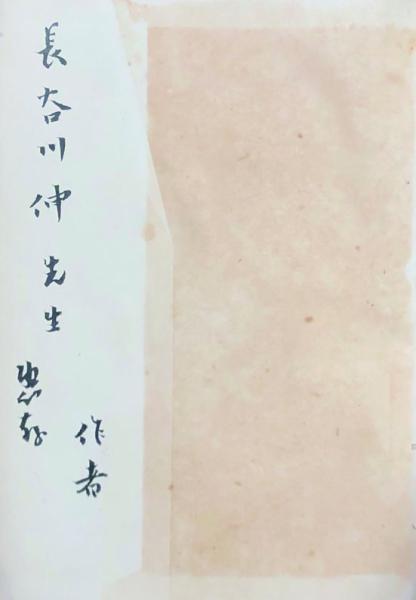 長谷川伸先生
恵存
作者